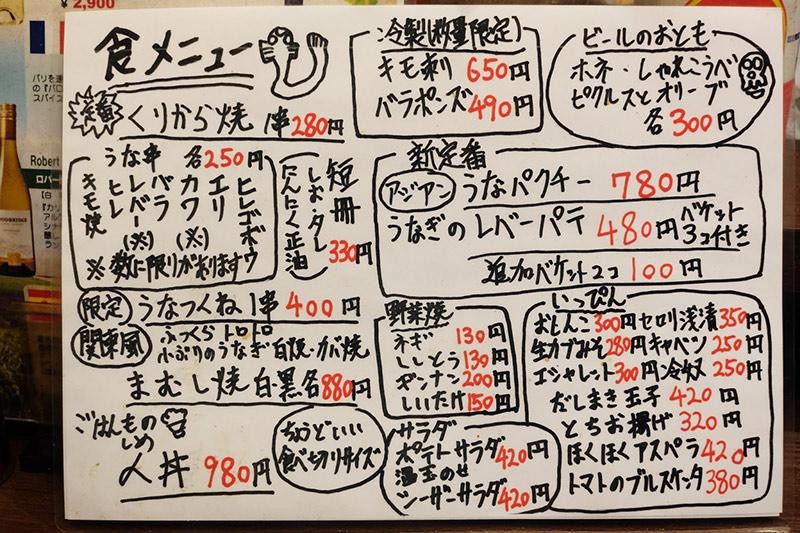 ¥2,900
食メニュー
定番
くりから焼 1串280円
うな串 各250円
キモ焼
ヒレ
レバー(※)
バラ
カワ(※)
エリ
ヒレゴボウ
※数に限りがあります
短冊
しお・タレ
にんにく正油
330円
限定 うなつくね 1串400円
関東風 ふっくらトロトロ
小ぶりのうなぎ 白焼・カバ焼
まむし焼 白・黒各880円
ごはんもの
しめ
人丼 980円
ちょうどいい
食べ切りサイズ
冷製(数量限定)
キモ刺 650円
バラポンズ 490円
ビールのおとも
ホネ・しゃれこうべ
ピクルスとオリーブ
各300円
新定番
アジアン うなパクチー 780円
うなぎのレバーパテ 480円 バケット
3コ付き
追加バケット2コ 100円
野菜焼
ネギ 130円
ししとう 130円
ギンナン 200円
しいたけ 150円
サラダ
ポテトサラダ 420円
温玉のせ
シーザーサラダ 420円
いっぴん
おしんこ 300円 セロリ浅漬 350円
生カブみそ 280円 キャベツ 250円
エシャレット 300円 冷奴 250円
だしまき玉子 420円
とちお揚げ 320円
ほくほくアスパラ 420円
トマトのブルスケッタ 380円
Robert